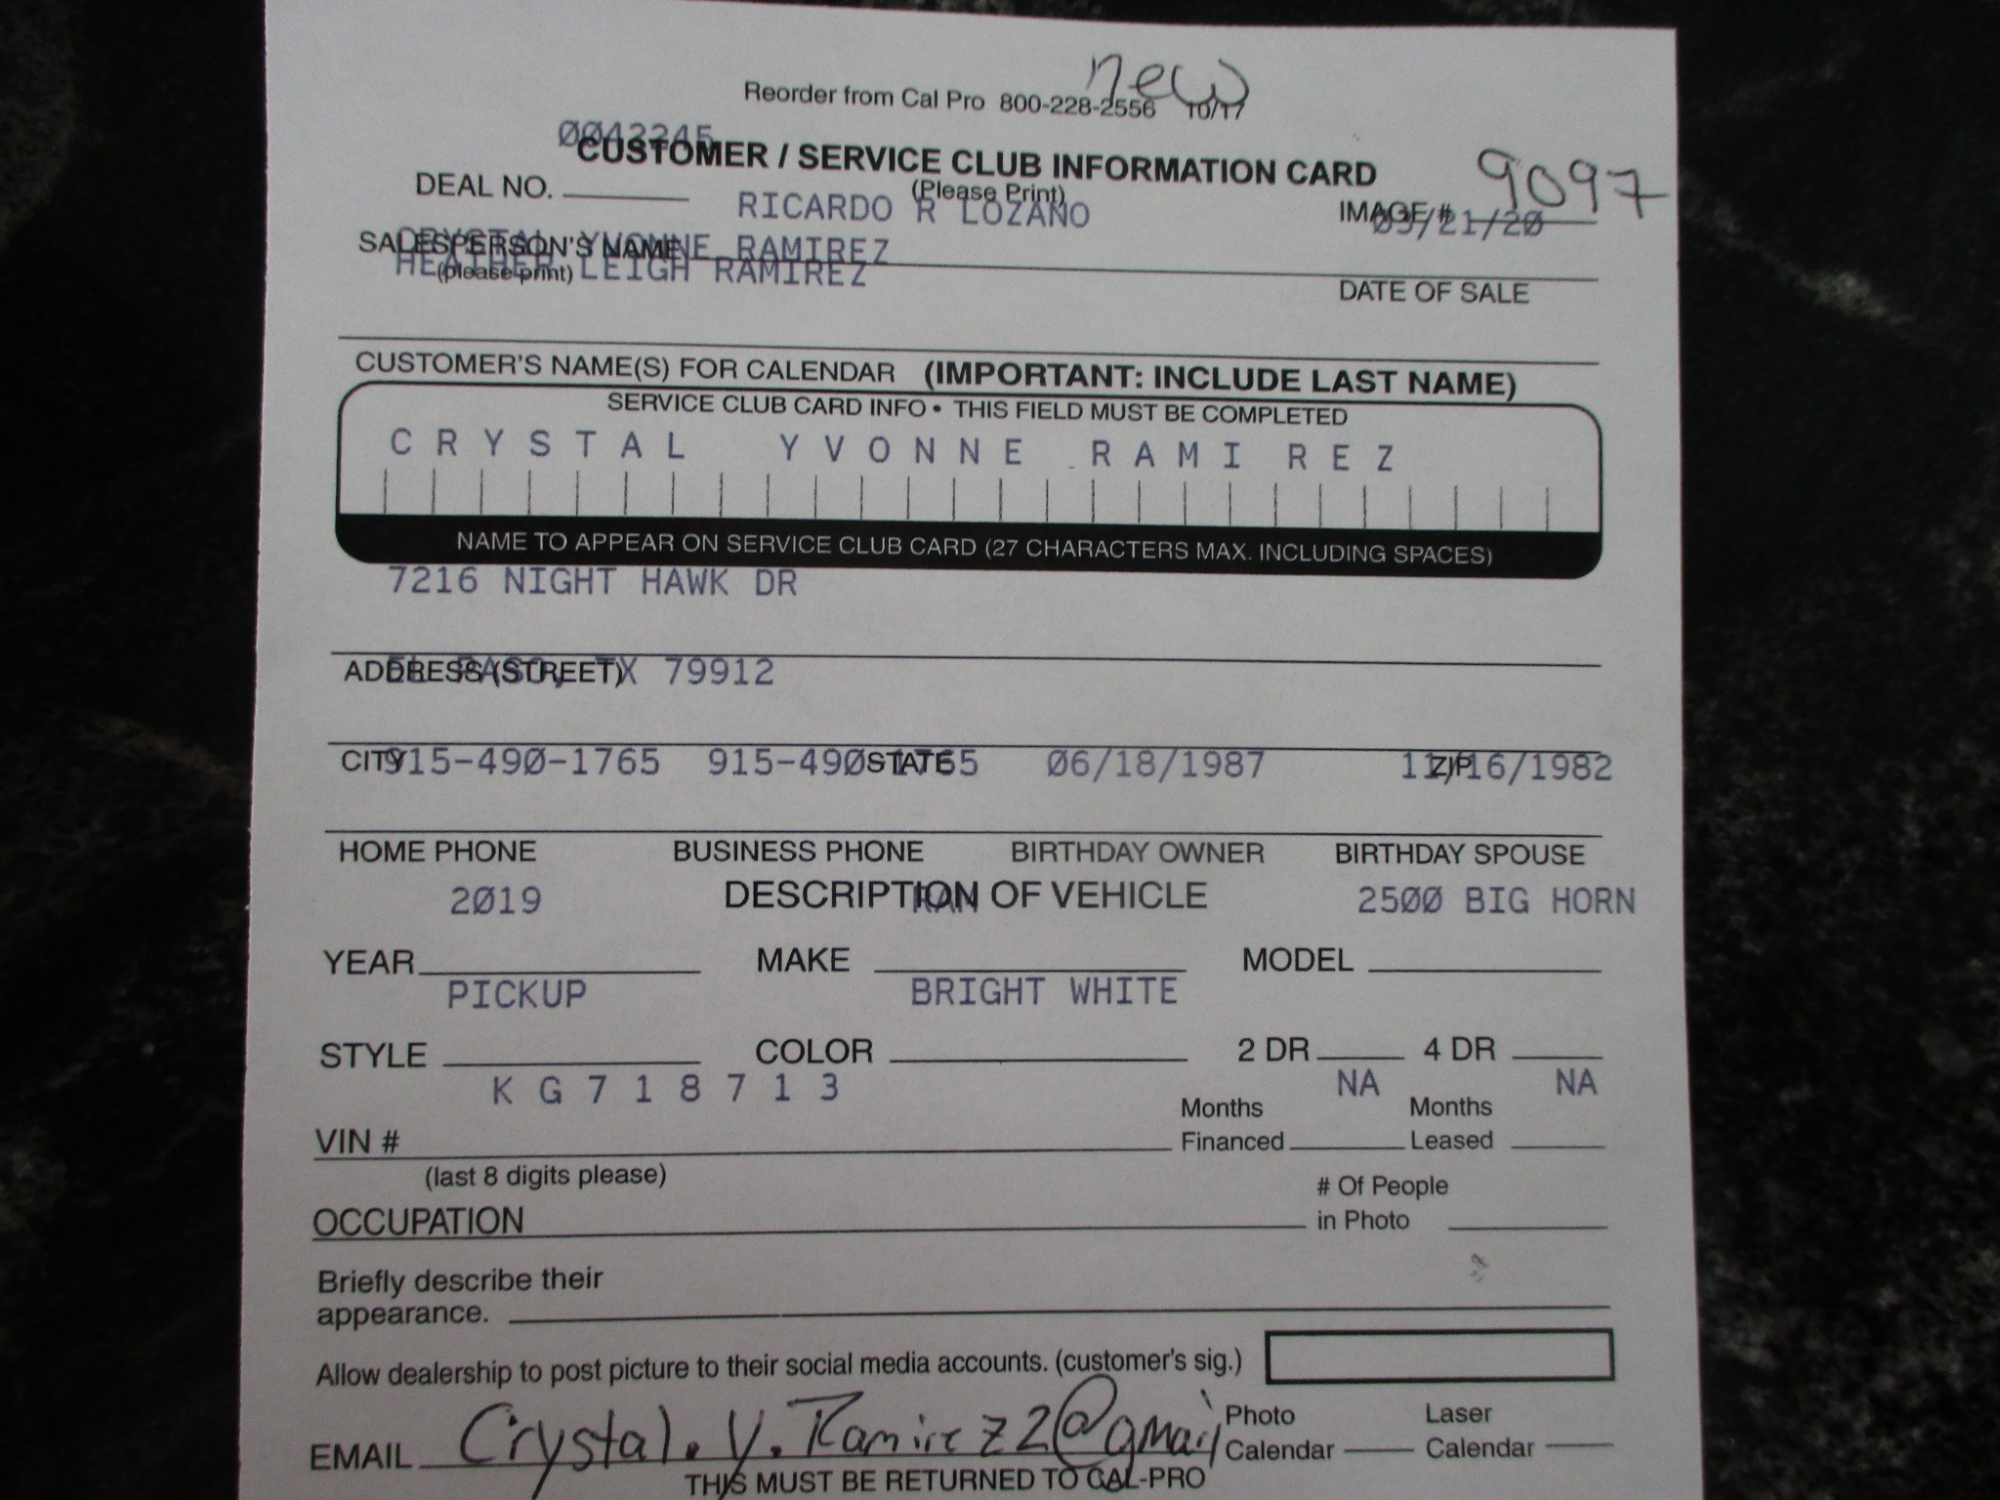 new
Reorder from Cal Pro 800-228-2556 10/17
0042245
CUSTOMER / SERVICE CLUB INFORMATION CARD
(Please Print)
9097
DEAL NO.
RICARDO R LOZANO
IMAGE #
09/21/20
SALESPERSON'S NAME
CRYSTAL YVONNE RAMIREZ
(please print)
HEATHER LEIGH RAMIREZ
DATE OF SALE
CUSTOMER'S NAME(S) FOR CALENDAR (IMPORTANT: INCLUDE LAST NAME)
SERVICE CLUB CARD INFO • THIS FIELD MUST BE COMPLETED
CRYSTAL YVONNE RAMIREZ
NAME TO APPEAR ON SERVICE CLUB CARD (27 CHARACTERS MAX. INCLUDING SPACES)
7216 NIGHT HAWK DR
ADDRESS (STREET)
EL PASO, TX 79912
CITY STATE ZIP
915-490-1765 915-490-1765 06/18/1987 11/16/1982
HOME PHONE BUSINESS PHONE BIRTHDAY OWNER BIRTHDAY SPOUSE
DESCRIPTION OF VEHICLE
2019 RAM 2500 BIG HORN
YEAR MAKE MODEL
PICKUP BRIGHT WHITE
STYLE COLOR 2 DR 4 DR
KG718713 NA NA
VIN # Months Financed Months Leased
(last 8 digits please)
OCCUPATION # Of People in Photo
Briefly describe their
appearance.
Allow dealership to post picture to their social media accounts. (customer's sig.)
EMAIL Crystal.y.Ramirez2@gmail Photo Calendar Laser Calendar
THIS MUST BE RETURNED TO CAL-PRO